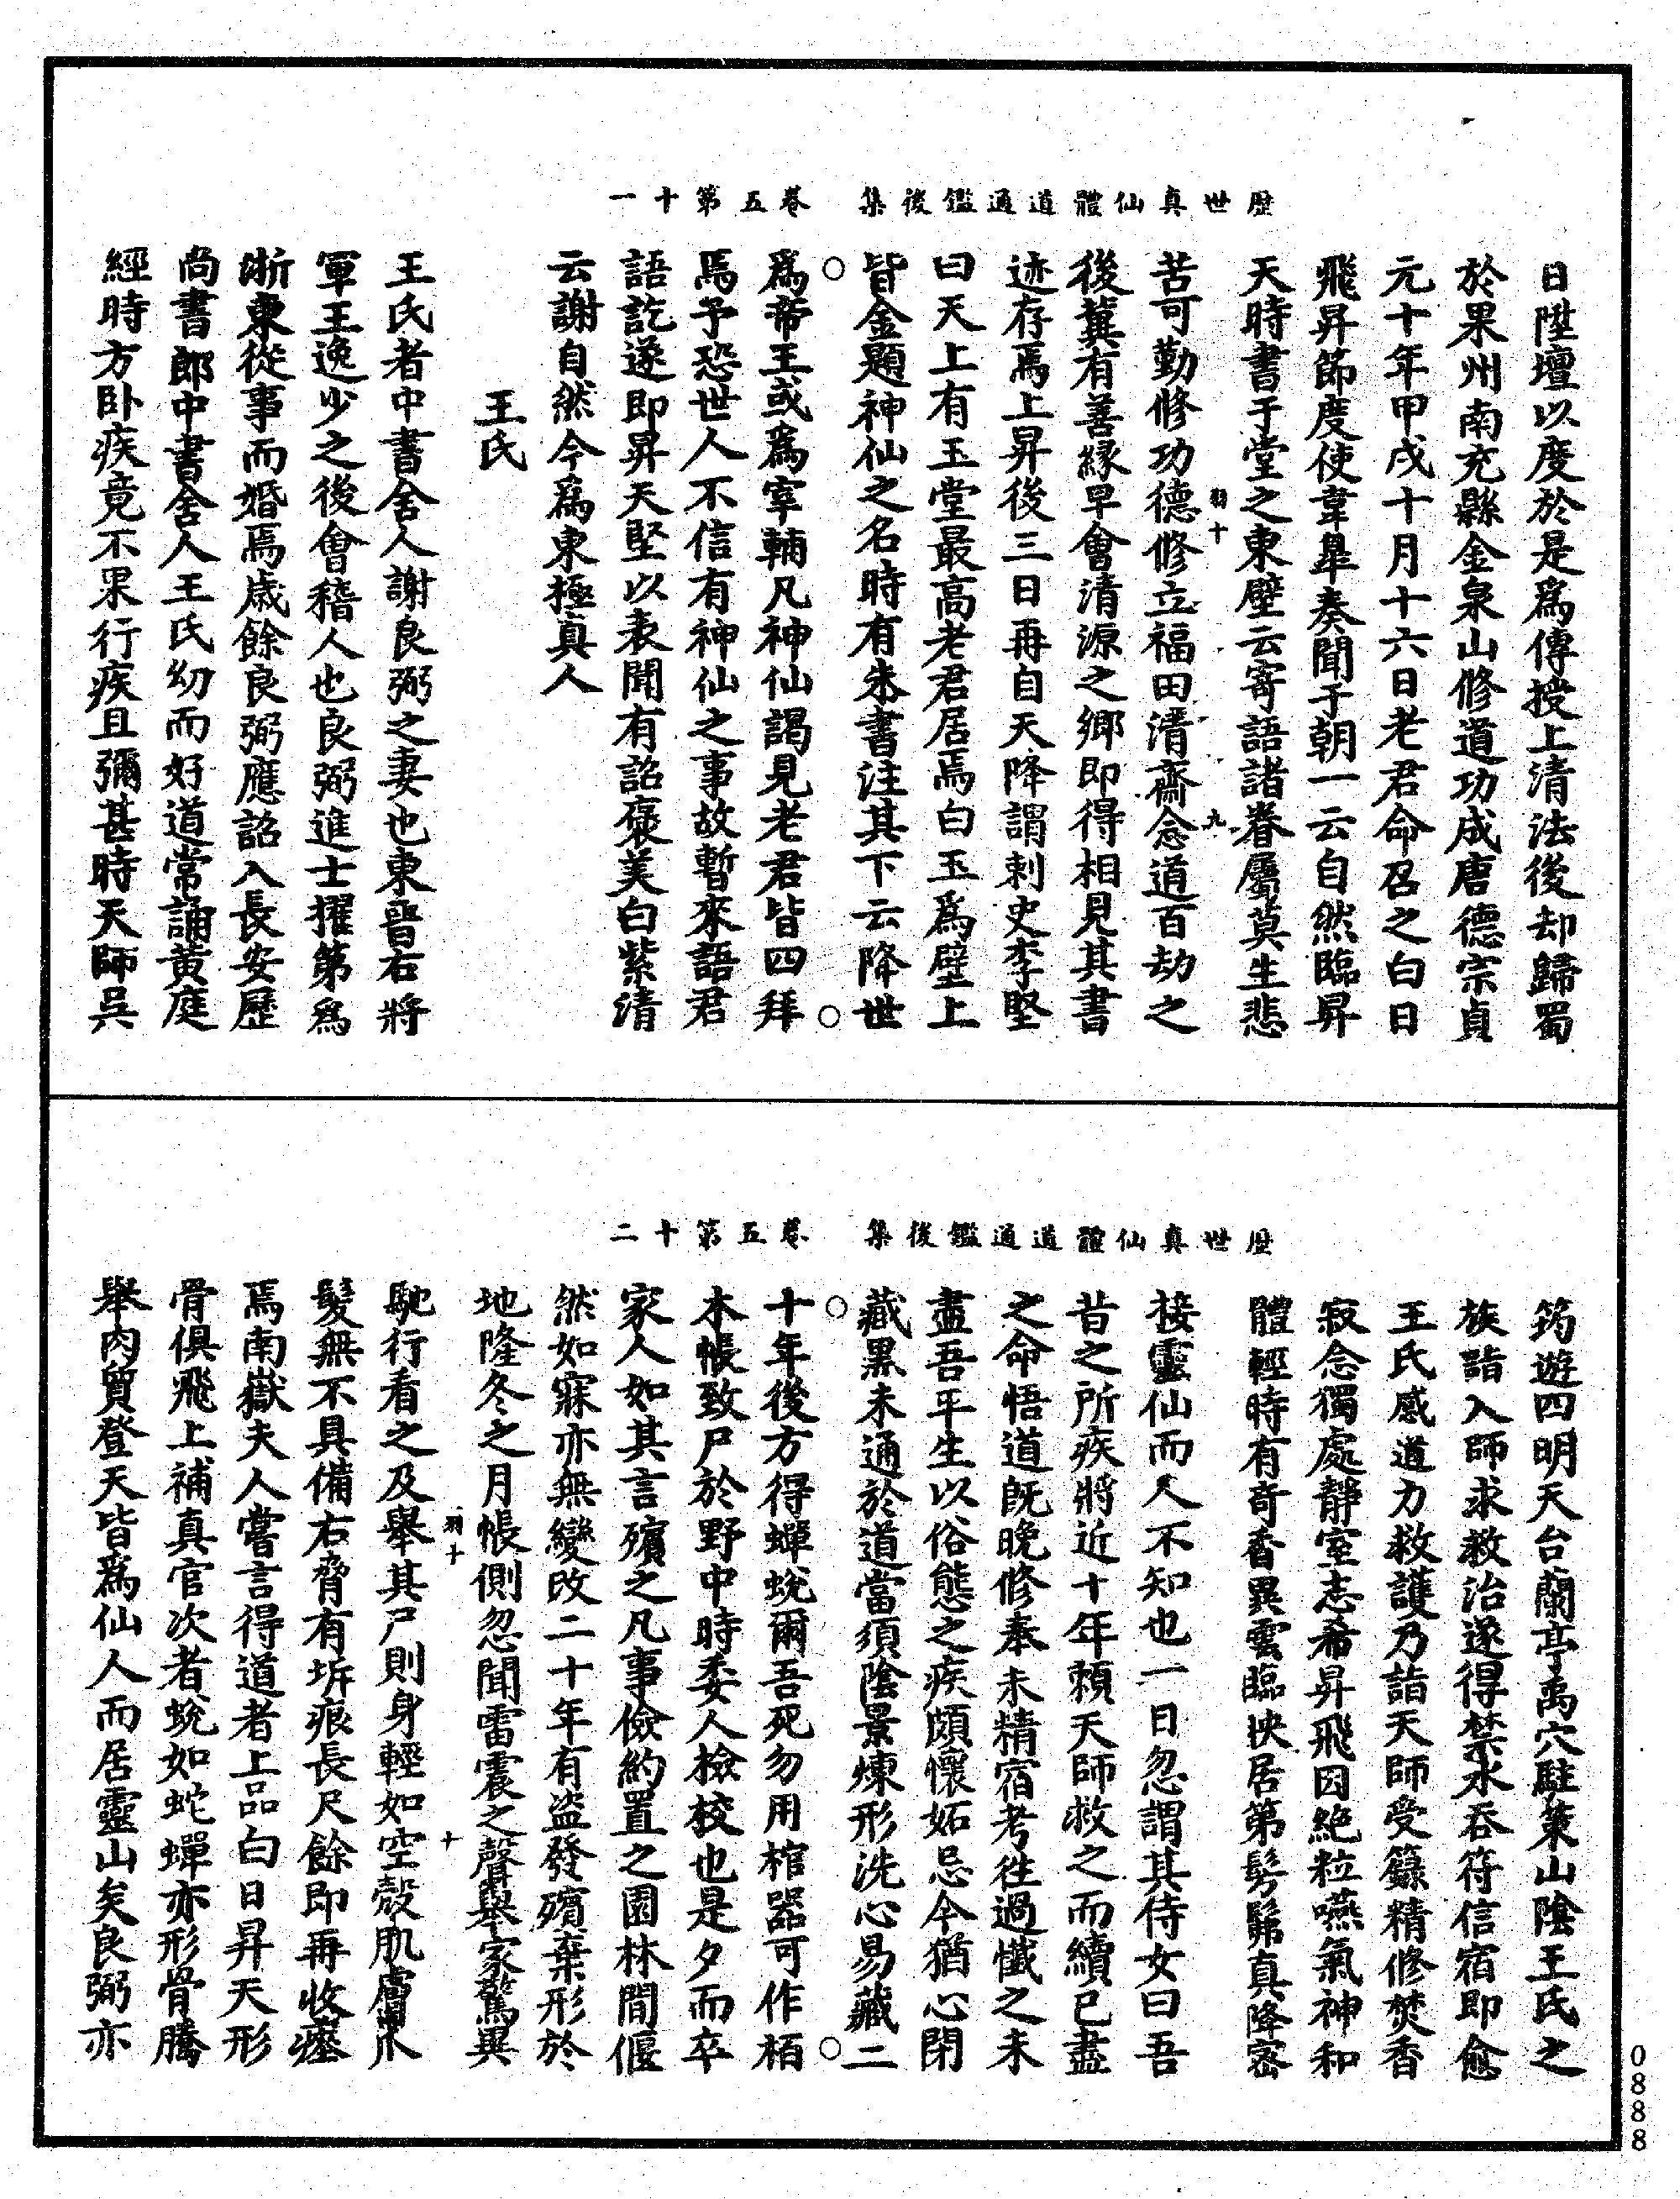 歷世真仙體道通鑑後集　卷五第十一
日陞壇以度於是爲傳授上清法後却歸蜀
於果州南充縣金泉山修道功成唐德宗貞
元十年甲戌十月十六日老君命召之白日
飛昇節度使韋臯奏聞于朝一云自然臨昇
天時書于堂之東壁云寄語諸眷屬莫生悲
苦可勤修功德修立福田清齋念道百劫之
羽十　九
後冀有善緣早會清源之鄉即得相見其書
迹存焉上昇後三日再自天降謂刺史李堅
曰天上有玉堂最高老君居焉白玉爲壁上
皆金題神仙之名時有朱書注其下云降世
爲帝王或爲宰輔凡神仙謁見老君皆四拜
焉予恐世人不信有神仙之事故暫來語君
語訖遂即昇天堅以表聞有詔褒美白紫清
云謝自然今爲東極真人
王氏
王氏者中書舍人謝良弼之妻也東晉右將
軍王逸少之後會稽人也良弼進士擢第爲
浙東從事而婚焉歲餘良弼應詔入長安歷
尚書郎中書舍人王氏幼而好道常誦黃庭
經時方卧疾竟不果行疾且彌甚時天師吳
歷世真仙體道通鑑後集　卷五第十二
筠遊四明天台蘭亭禹穴駐策山陰王氏之
族詣入師求救治遂得禁水吞符信宿即愈
王氏感道力救護乃詣天師受籙精修焚香
寂念獨處靜室志希昇飛因絕粒嚥氣神和
體輕時有奇香異雲臨映居第髣髴真降密
接靈仙而人不知也一日忽謂其侍女曰吾
昔之所疾將近十年賴天師救之而續已盡
之命悟道既晚修奉未精宿考往過懺之未
盡吾平生以俗態之疾頗懷妬忌今猶心閉
藏黑未通於道當須陰景煉形洗心易藏二
十年後方得蟬蛻爾吾死勿用棺器可作栢
木帳致尸於野中時委人檢校也是夕而卒
家人如其言殯之凡事儉約置之園林間偃
然如寐亦無變改二十年有盜發殯棄形於
地隆冬之月帳側忽聞雷震之聲舉家驚異
羽十　十
馳行看之及舉其尸則身輕如空殼肌膚爪
髮無不具備右脅有坼痕長尺餘即再收瘞
焉南嶽夫人嘗言得道者上品白日昇天形
骨俱飛上補真官次者蛻如蛇蟬亦形骨騰
舉肉質登天皆爲仙人而居靈山矣良弼亦
0888